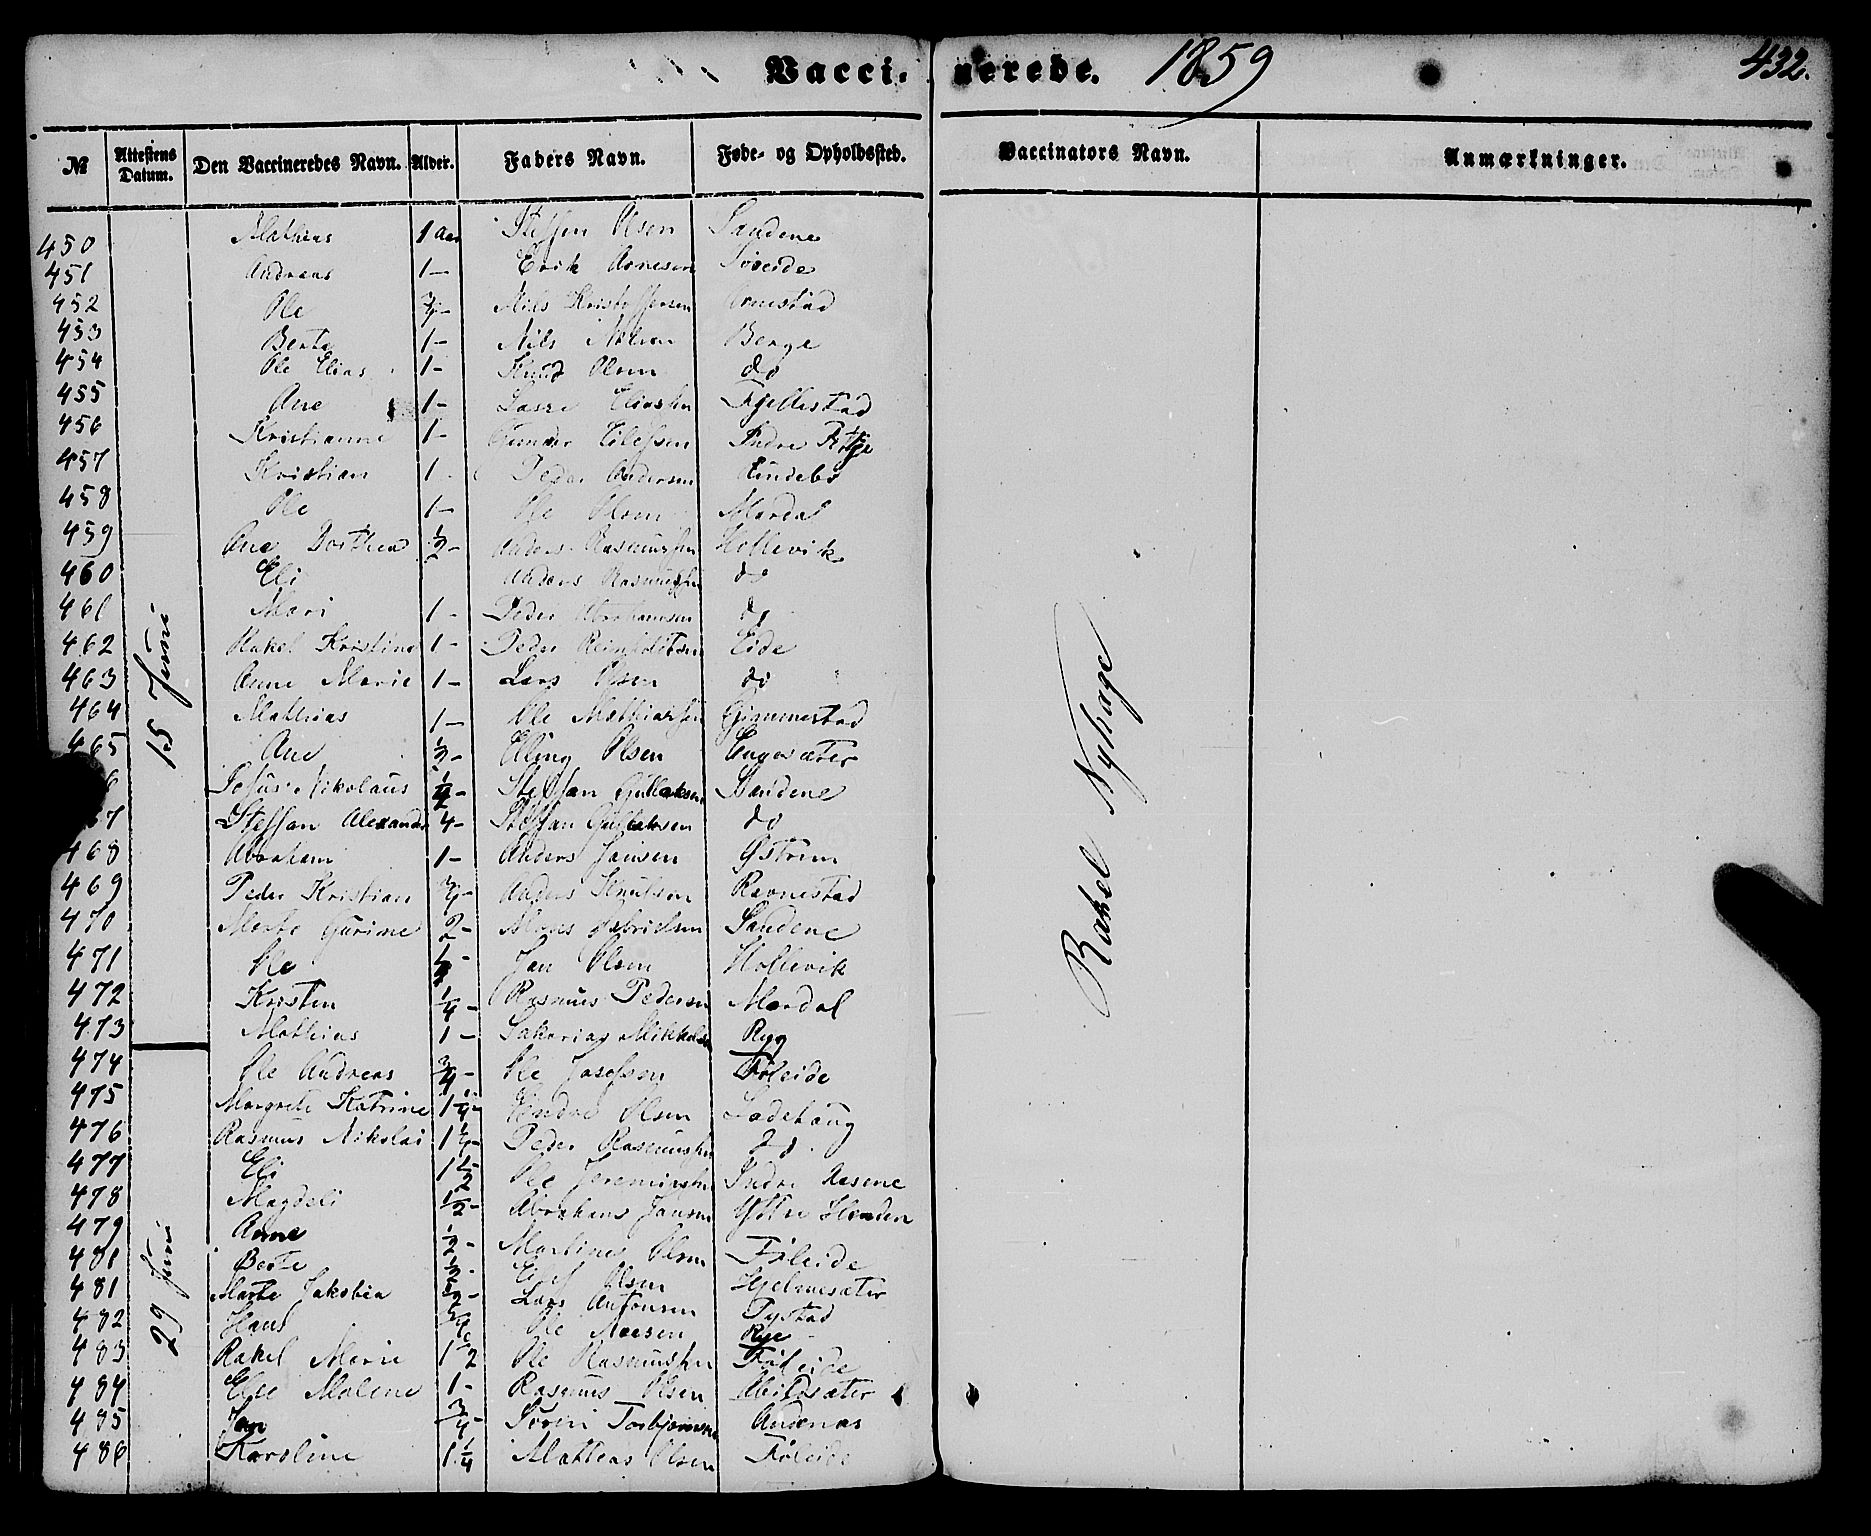 Vaccinerede. 1859 432.
№ Attestens Datum. Den Vaccineredes Navn. Alder. Faders Navn. Føde- og Opholdssted. Vaccinators Navn. Anmærkninger.
450 Mathias 1 Aar Steffen Olsen Sandene
451 Andreas 1 — Erik Arnesen Søreide
452 Ole Nils Kristoffersen Arnestad
453 Berte 1 — Nils Nilsen Berge
454 Ole Elias 1 — Knud Olsen do
455 Ane 1 — Lasse Eliassen Fjellestad
456 Kristianne 1 — Gunder Indre
457 Kristian 1 - Peder Andersen Eindebø
458 Ole 1 — Ole Olsen Mardal
459 Ane Dorthea ½ — Anders Rasmussen Hollevik
460 Eli Anders Rasmussen do
461 Mari 1 — Peder Abrahamsen do
462 Rakel Kristine 1 — Peder Reinholdtsen Eide
463 Anne Marie 1 — Lars Olsen do
464 Mathias 1 — Ole Mathiassen Gjimmestad
465 Ane ½ — Elling Olsen Engesæter
Nikolaus Steffan Gullaksen Sandene
Steffan Alexander 4 — Steffan Gullaksen do
468 Abraham 1 — Anders Jansen Østrem
469 Peder Kristian ¾ — Anders Knutsen Ravnestad
470 Marte Gurine 2 — Mons Gabrielsen Sandene
471 Ole Jan Olsen Hollevik
472 Kristen ¼ — Rasmus Pedersen Mardal
473 Mathias 1 — Sakarias Mikkelsen Ryg
15 Juni
474 Ole Andreas ¾ — Ole Josefsen Føleide
475 Margrete Katrine 1 ¼ — Endre Olsen Ladehaug
476 Rasmus Nikolai 1 ¼ — Peder Rasmussen do
477 Eli 1 ½ Ole Jeremiassen Indre Aasene
478 Magdeli ½ — Abraham Jansen Yttre Hauden
479 Anne ½ — Martines Olsen Føleide
481 Berte ½ — Elef Olsen Hjelmesæter
481 Marte Jakobea Lars Antonsen Tystad
482 Hans Ole Rye
483 Rakel Marie 1 ½ Ole Rasmussen Føleide
484 Else Malene 1 - Rasmus Olsen Abildsæter
485 Jan ¾ — Søren Torbjørnsen Andenæs
486 Karoline 1 ¼ Mathias Olsen Føleide
29 Juni
Rakel Nyhage